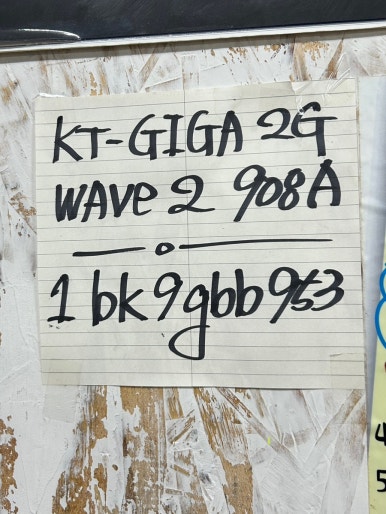 KT-GIGA 2G
WAVe 2 908A
1bk9gbb953
4
5